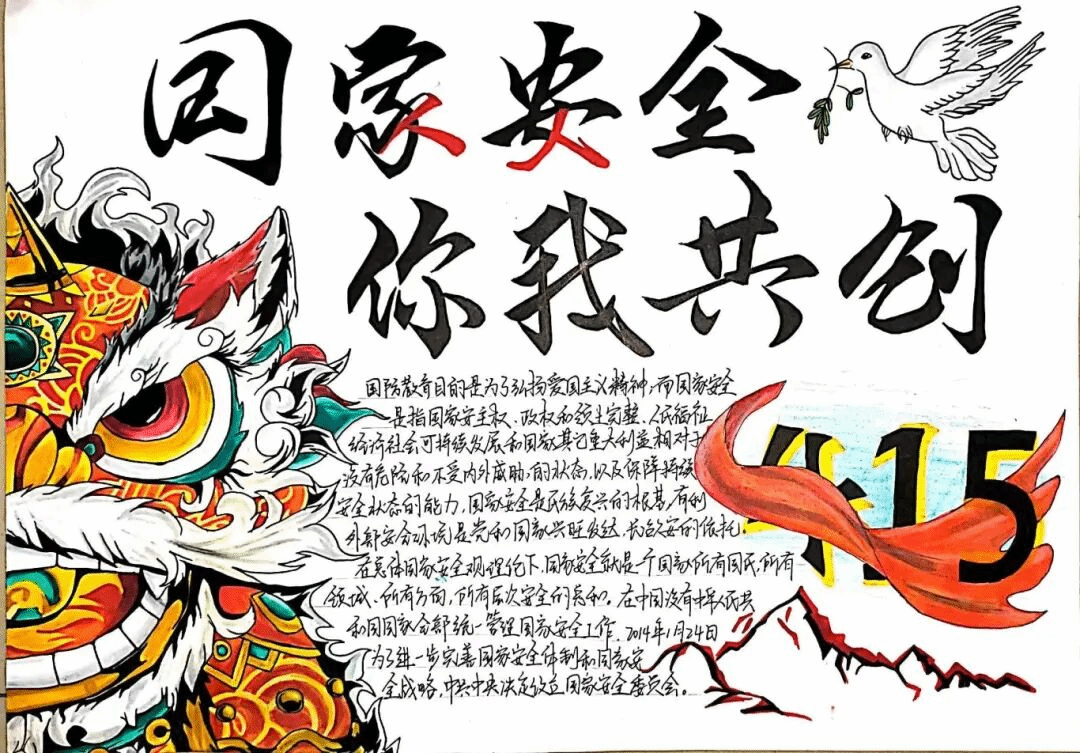 国家安全
你我共创
国防教育目的是为了弘扬爱国主义精神,而国家安全
是指国家安主权、政权和领土完整、人民福祉
经济社会可持续发展和国家其它重大利益相对于
没有危险和不受内外威胁的状态,以及保障持续
安全状态的能力,国家安全是民族复兴的根基,有利
外部安全环境是党和国家兴旺发达、长治久安的依托
在总体国家安全观理论下,国家安全就是一个国家所有国民,所有
领域、所有方面,所有层次安全的总和。在中国没有中华人民共
和国国家全部统一管理国家安全工作,2014年1月24日
为了进一步完善国家安全体制和国家安
全战略,中共中央决定设立国家安全委员会。
4.15